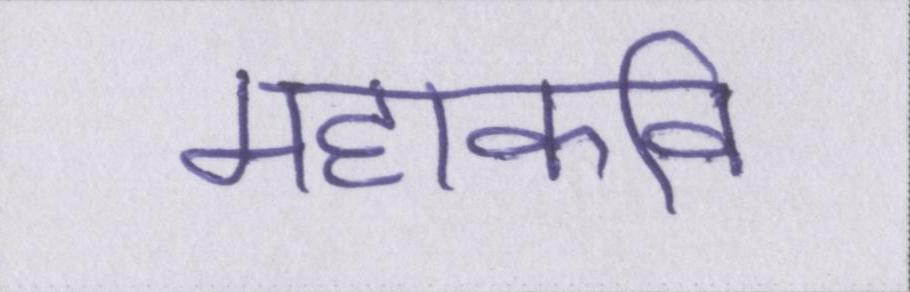 महाकवि